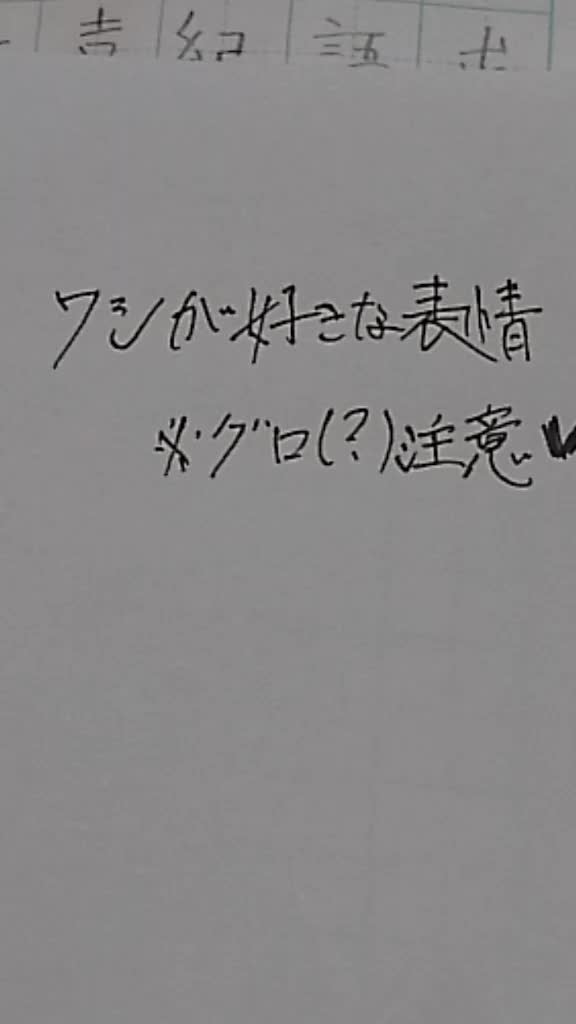 ワシが好きな表情
※グロ(?)注意♥